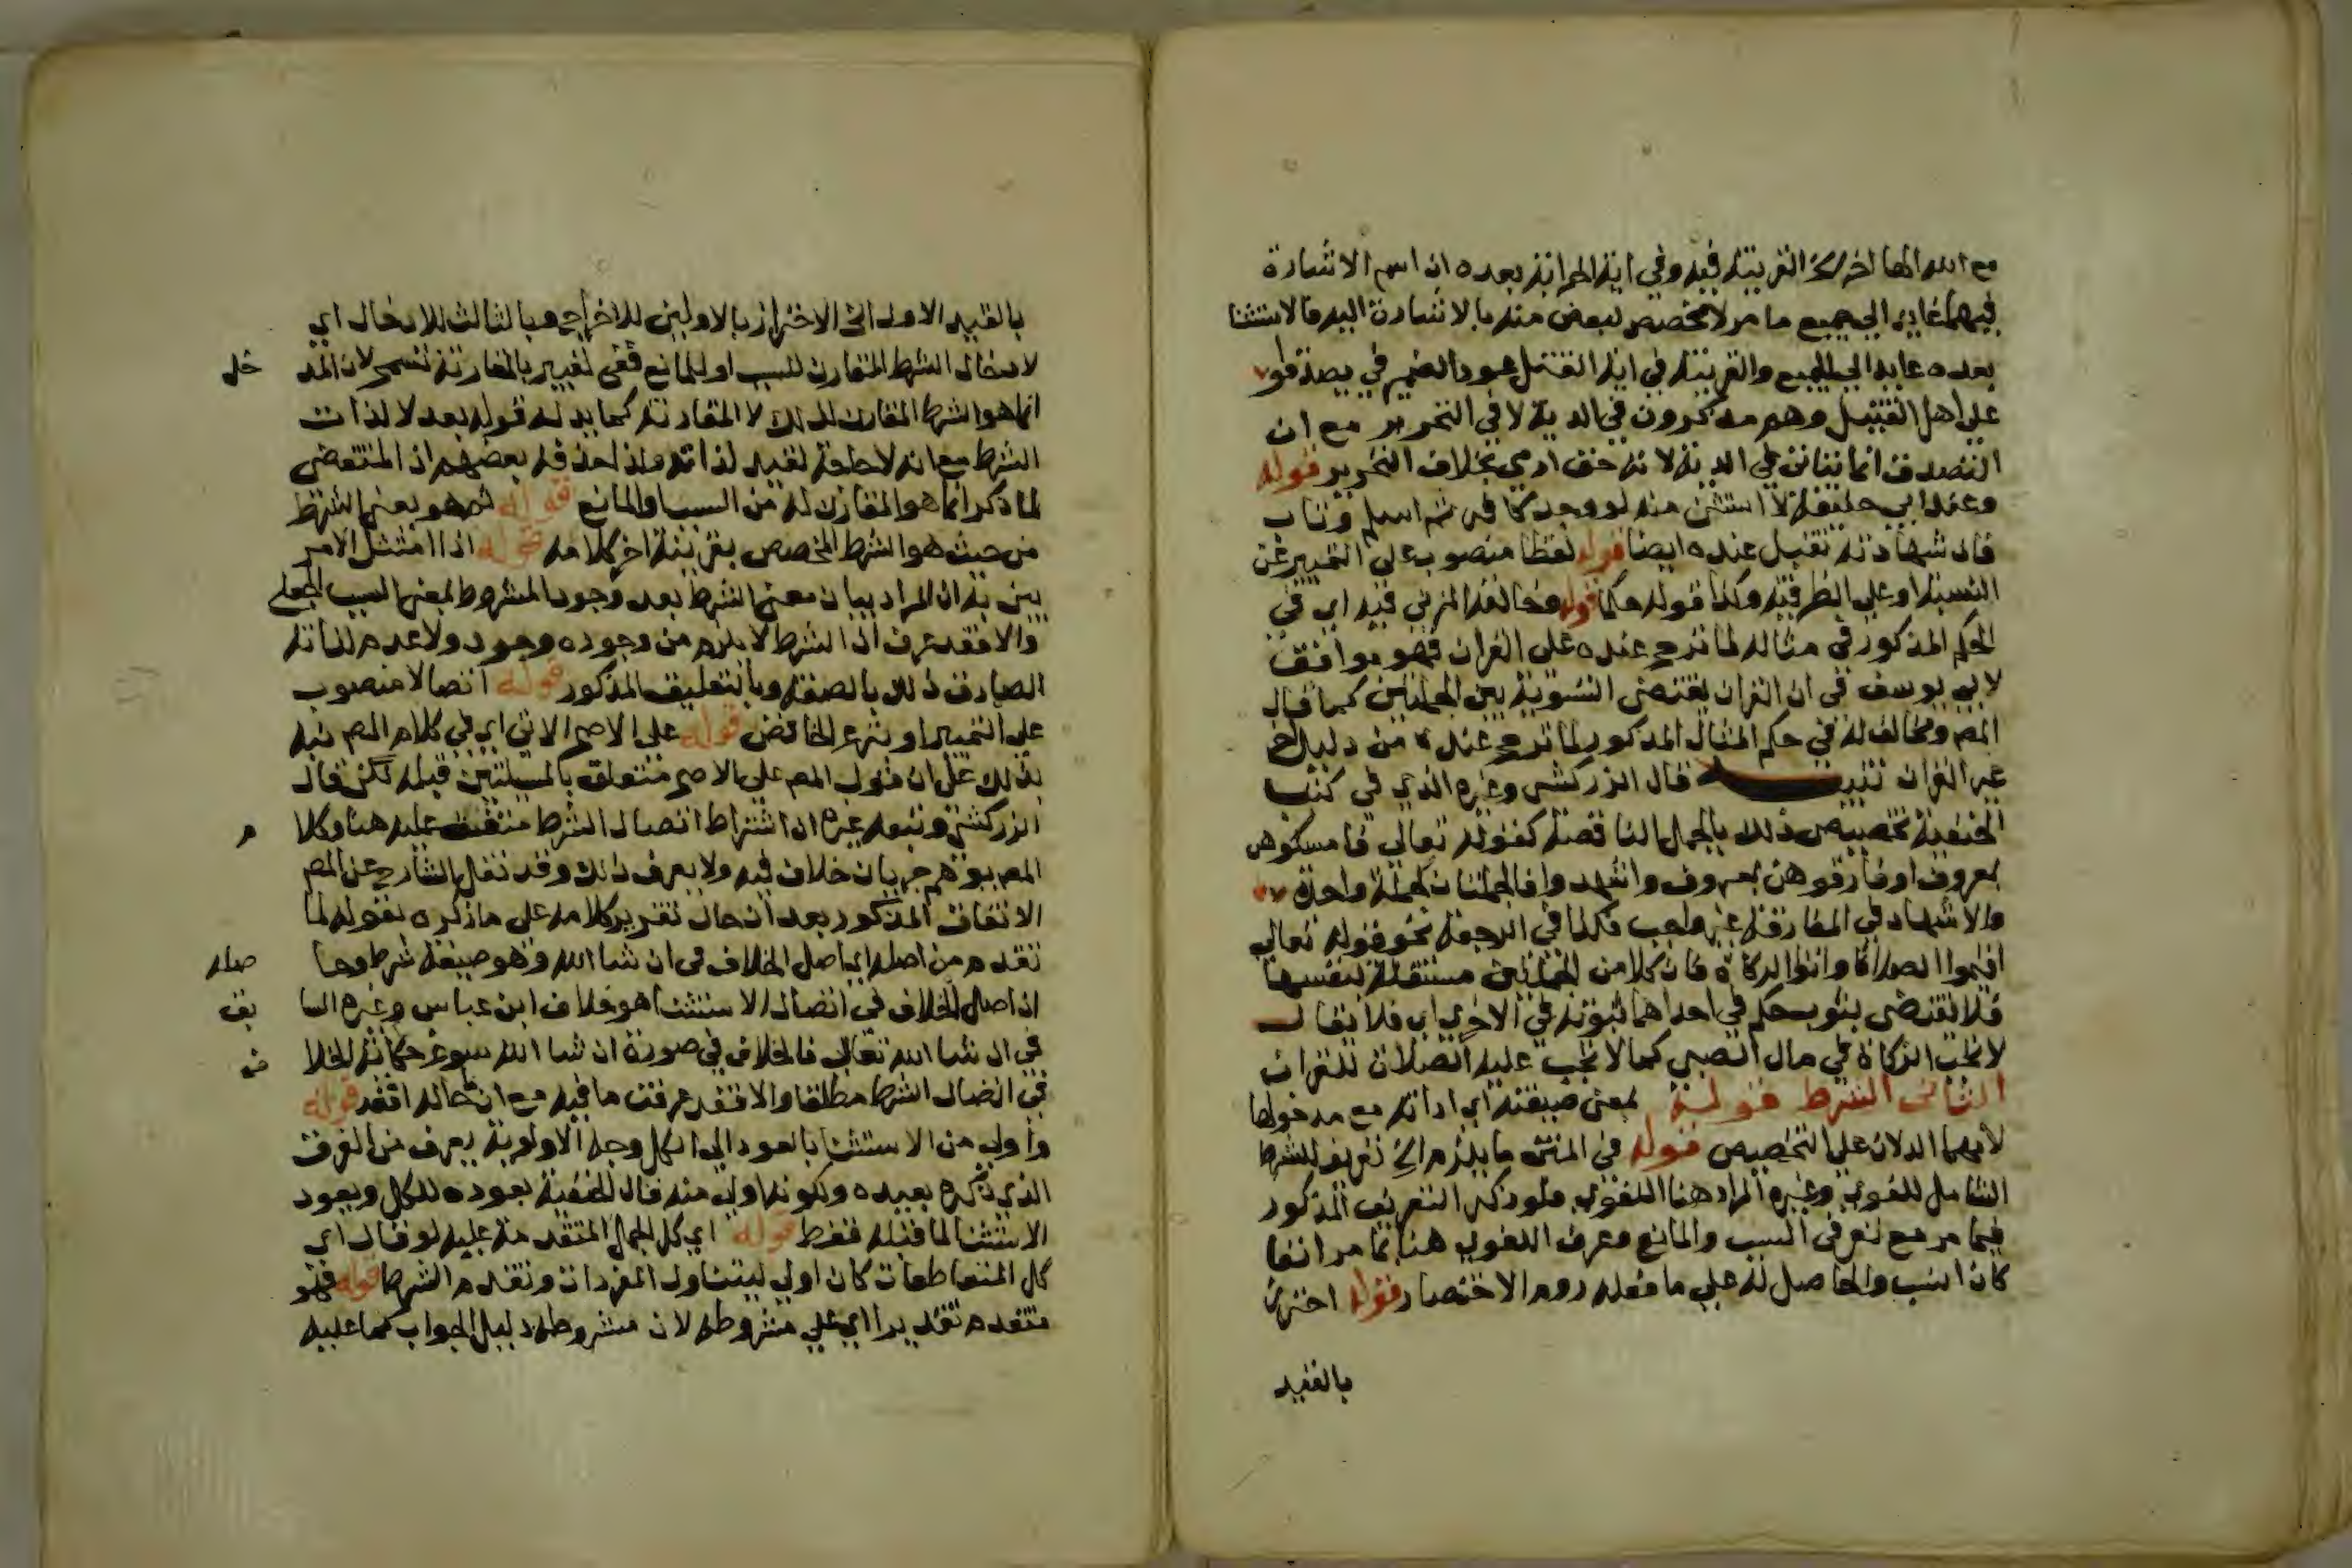 مع الله الها اخر الخ القرينة فيه وفي اية المحرابة بعده ان اسم الاشارة
فيهما عايد الى جميع ما مر لا تخصيص لبعض منه بالاشارة اليه فالاستثنا
بعده عايد الى الجميع والقرينة في اية القتل عود الضمير في يصدقوا
على اهل القتيل وهم مذكورون في الدية لا في التحرير مع ان
التصدق انما يتاتى في الدية لانه حق ادمي بخلاف التحرير قوله
وعند ابي حنيفة لا استثنى منه لو وجد كافر ثم اسلم وتاب
فان شهادته تقبل عنده ايضا قوله لفظا منصوب على التمييز عن
النسبة او على الظرفية وكذا قوله حكما قوله وخالفه المزني فيه اي في
الحكم المذكور في مثاله لما ترجح عنده على القران فهو موافق
لابي يوسف في ان القران يقتضي التسوية بين الجملتين كما قال
المص ومخالف له في حكم المثال المذكور لما ترجح عنده من دليل اخر
غير القران تنبيه قال الزركشي وغيره الذي في كتب
الحنفية تخصيص ذلك بالجمل الناقصة كقوله تعالى فامسكوهن
بمعروف او فارقوهن بمعروف واشهدوا فالجملتان كجملة واحدة
والاشهاد في المفارقة غير واجب فكذا في الرجعة نحو قوله تعالى
اقيموا الصلاة واتوا الزكاة فان كلا من الجملتين مستقلة بنفسها
فلا يقتضي ثبوت حكم في احداهما ثبوته في الاخرى اي فلا يقال
لا تجب الزكاة في مال الصبي كما لا تجب عليه الصلاة للقران
الثاني الشرط قوله بمعنى صيغته اي اداته مع مدخولها
لانهما الدلان على التخصيص قوله في المتن ما يلزم الخ تعريف للشرط
الشامل للغوي وغيره المراد هنا اللغوي فلو ذكر التعريف المذكور
فيما مر مع تعريفي السبب والمانع وعرف اللغوي هنا بما مر انفا
كان انسب والحاصل له على ما فعله روم الاختصار قوله احترز
بالقيد
بالقيد الاول الخ الاحتراز بالاولين للاخراج وبالثالث للادخال اي
لادخال الشرط المقارن للسبب او للمانع ففي تعبير بالمقارنة تسمح لان المد خل
انما هو الشرط المقارن لذلك لا المقارنة كما يدل له قوله بعد لا لذات
الشرط مع انه لا حاجة لقيد لذاته ومن ثم حذفه بعضهم اذ المقتضي
لما ذكر انما هو المقارن له من السبب والمانع قوله ثم هو بمعنى الشرط
من حيث هو الشرط المخصص بقرينة اخر كلامه قوله اذا امتثل الامر
بين به ان المراد بيان معنى الشرط بعد وجود المشروط بمعنى السبب الجعلي
والا فقد عرف ان الشرط لا يلزم من وجوده وجود ولا عدم لذاته
الصادق ذلك بالصفة وبالتعليق المذكور قوله اتصالا منصوب
على التمييز او بنزع الخافض قوله على الاصح الاتي اي في كلام المص نبه
بذلك على ان قول المص على الاصح متعلق بالمسيلتين قبله لكن قال
الزركشي وتبعه غيره ان اشتراط اتصال الشرط متفق عليه هنا وكلا م
المص يوهم جريان خلاف فيه ولا يعرف ذلك وقد نقل الشارح عن المص
الاتفاق المذكور بعد ان حاك تقرير كلامه على ما ذكره بقوله لما
تقدم من اصله اي اصل الخلاف في ان شا الله وهو صيغة شرط وحا صله
ان اصل الخلاف في اتصال الاستثنا هو خلاف ابن عباس وغيره السا بق
في ان شا الله تعالى فالخلاف في صورة ان شا الله سوغ حكاية الخلا ف
في اتصال الشرط مطلقا والا فقد عرفت ما فيه مع ان قوله
واولى من الاستثنا بالعود الى الكل وجه الاولوية يعرف من الفرق
الذي ذكره بعيده وكونه اولى منه قال الحنفية بعوده للكل وبعود
الاستثنا لما قبله فقط قوله اي كل الجمل المتقدمة عليه لو قال اي
كل المتعاطفات كان اولى ليتناول المفردات وتقدم الشرط قوله فهو
متقدم تقديرا اي على مشروطه لان مشروطه دليل الجواب كما عليه